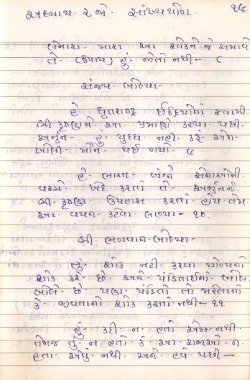 અધ્યાય ૨ જો સાંખ્યયોગ ૧૫
મારા આ શોકને જે
તે (ઉપાય) હું જોતો નથી - ૮
સંજય બોલ્યા
હે ધૃતરાષ્ટ્ર ઈંદ્રિયોના સ્વામી
શ્રી કૃષ્ણને આ પ્રમાણે કહ્યા પછી
અર્જુન હું યુદ્ધ નહીં કરૂં એમ
બોલી મૌન થઈ ગયો ૯
હે ભારત બંન્ને સેનાઓની
વચ્ચે ખેદ કરતા તે અર્જુનને
શ્રી કૃષ્ણ ઉપહાસ કરતા હોય તેમ
આ વચન કહેવા લાગ્યા - ૧૦
શ્રી ભગવાન બોલ્યા
તું શોક નહીં કરવા યોગ્યનો
શોક કરે છે અને પંડિતાઈના બોલ
બોલે છે પણ પંડિતો તો મરેલાનો
કે જીવતાનો શોક કરતાં નથી - ૧૧
હું કદી ન હતો એમ નથી
તેમજ તું ન હતો કે આ રાજાઓ ન
હતા એવું નથી અને હવે પછી -